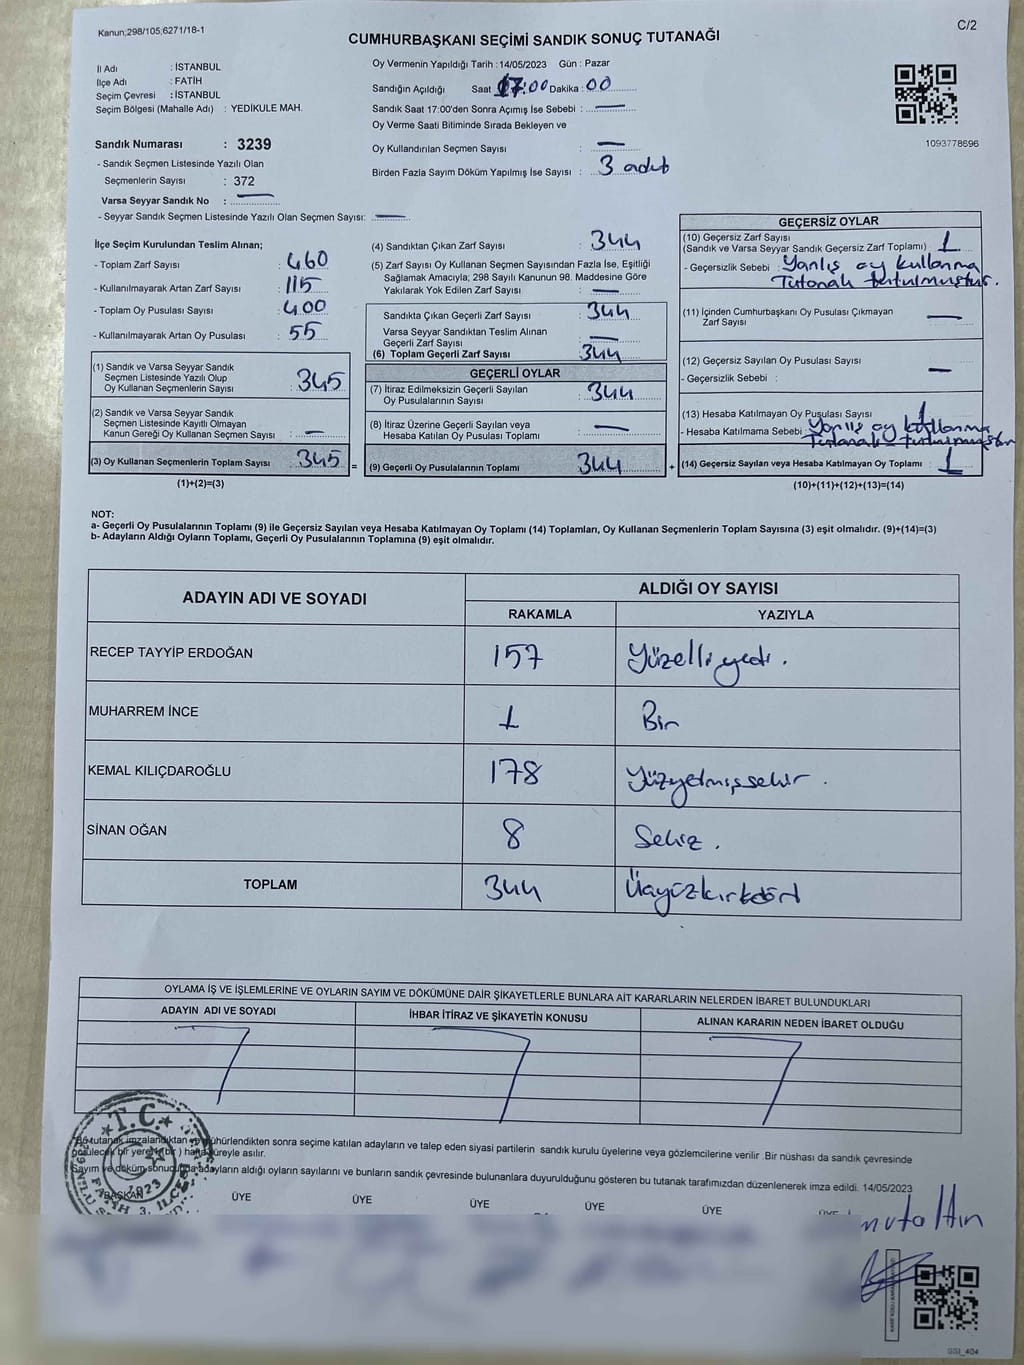 Kanun;298/105;6271/18-1
C/2
CUMHURBAŞKANI SEÇİMİ SANDIK SONUÇ TUTANAĞI
İl Adı : İSTANBUL
İlçe Adı : FATİH
Seçim Çevresi : İSTANBUL
Seçim Bölgesi (Mahalle Adı) : YEDİKULE MAH.
Sandık Numarası : 3239
- Sandık Seçmen Listesinde Yazılı Olan
Seçmenlerin Sayısı : 372
Varsa Seyyar Sandık No :
- Seyyar Sandık Seçmen Listesinde Yazılı Olan Seçmen Sayısı:
Oy Vermenin Yapıldığı Tarih :14/05/2023 Gün : Pazar
Sandığın Açıldığı Saat : 17:00 Dakika : 00
Sandık Saat 17:00'den Sonra Açımış İse Sebebi :
Oy Verme Saati Bitiminde Sırada Bekleyen ve
Oy Kullandırılan Seçmen Sayısı :
Birden Fazla Sayım Döküm Yapılmış İse Sayısı : 3 adet
1093778696
İlçe Seçim Kurulundan Teslim Alınan;
- Toplam Zarf Sayısı : 460
- Kullanılmayarak Artan Zarf Sayısı : 115
- Toplam Oy Pusulası Sayısı : 400
- Kullanılmayarak Artan Oy Pusulası : 55
(1) Sandık ve Varsa Seyyar Sandık
Seçmen Listesinde Yazılı Olup
Oy Kullanan Seçmenlerin Sayısı : 345
(2) Sandık ve Varsa Seyyar Sandık
Seçmen Listesinde Kayıtlı Olmayan
Kanun Gereği Oy Kullanan Seçmen Sayısı : —
(3) Oy Kullanan Seçmenlerin Toplam Sayısı : 345 =
(1)+(2)=(3)
(4) Sandıktan Çıkan Zarf Sayısı : 344
(5) Zarf Sayısı Oy Kullanan Seçmen Sayısından Fazla İse, Eşitliği
Sağlamak Amacıyla; 298 Sayılı Kanunun 98. Maddesine Göre
Yakılarak Yok Edilen Zarf Sayısı : —
Sandıkta Çıkan Geçerli Zarf Sayısı : 344
Varsa Seyyar Sandıktan Teslim Alınan
Geçerli Zarf Sayısı : —
(6) Toplam Geçerli Zarf Sayısı : 344
GEÇERLİ OYLAR
(7) İtiraz Edilmeksizin Geçerli Sayılan
Oy Pusulalarının Sayısı : 344
(8) İtiraz Üzerine Geçerli Sayılan veya
Hesaba Katılan Oy Pusulası Toplamı : —
(9) Geçerli Oy Pusulalarının Toplamı : 344 +
GEÇERSİZ OYLAR
(10) Geçersiz Zarf Sayısı
(Sandık ve Varsa Seyyar Sandık Geçersiz Zarf Toplamı) : 1
- Geçersizlik Sebebi : Yanlış oy kullanma
Tutanak tutulmuştur.
(11) İçinden Cumhurbaşkanı Oy Pusulası Çıkmayan
Zarf Sayısı : —
(12) Geçersiz Sayılan Oy Pusulası Sayısı : —
- Geçersizlik Sebebi :
(13) Hesaba Katılmayan Oy Pusulası Sayısı : 1
- Hesaba Katılmama Sebebi : Yanlış oy kullanma
Tutanak tutulmuştur
(14) Geçersiz Sayılan veya Hesaba Katılmayan Oy Toplamı : 1
(10)+(11)+(12)+(13)=(14)
NOT:
a- Geçerli Oy Pusulalarının Toplamı (9) ile Geçersiz Sayılan veya Hesaba Katılmayan Oy Toplamı (14) Toplamları, Oy Kullanan Seçmenlerin Toplam Sayısına (3) eşit olmalıdır. (9)+(14)=(3)
b- Adayların Aldığı Oyların Toplamı, Geçerli Oy Pusulalarının Toplamına (9) eşit olmalıdır.
ADAYIN ADI VE SOYADI ALDIĞI OY SAYISI
RAKAMLA YAZIYLA
RECEP TAYYİP ERDOĞAN 157 Yüzelliyedi.
MUHARREM İNCE 1 Bir
KEMAL KILIÇDAROĞLU 178 Yüzyetmişsekiz.
SİNAN OĞAN 8 Sekiz.
TOPLAM 344 Üçyüzkırkdört
OYLAMA İŞ VE İŞLEMLERİNE VE OYLARIN SAYIM VE DÖKÜMÜNE DAİR ŞİKAYETLERLE BUNLARA AİT KARARLARIN NELERDEN İBARET BULUNDUKLARI
ADAYIN ADI VE SOYADI İHBAR İTİRAZ VE ŞİKAYETİN KONUSU ALINAN KARARIN NEDEN İBARET OLDUĞU
T.C.
Bu tutanak imzalandıktan ve mühürlendikten sonra seçime katılan adayların ve talep eden siyasi partilerin sandık kurulu üyelerine veya gözlemcilerine verilir .Bir nüshası da sandık çevresinde
görülecek bir yere 1 ( bir ) hafta süreyle asılır.
Sayım ve döküm sonucunda adayların aldığı oyların sayılarını ve bunların sandık çevresinde bulunanlara duyurulduğunu gösteren bu tutanak tarafımızdan düzenlenerek imza edildi. 14/05/2023
BAŞKAN ÜYE ÜYE ÜYE ÜYE ÜYE ÜYE
FATİH 3. İLÇE
2023
SSI_404